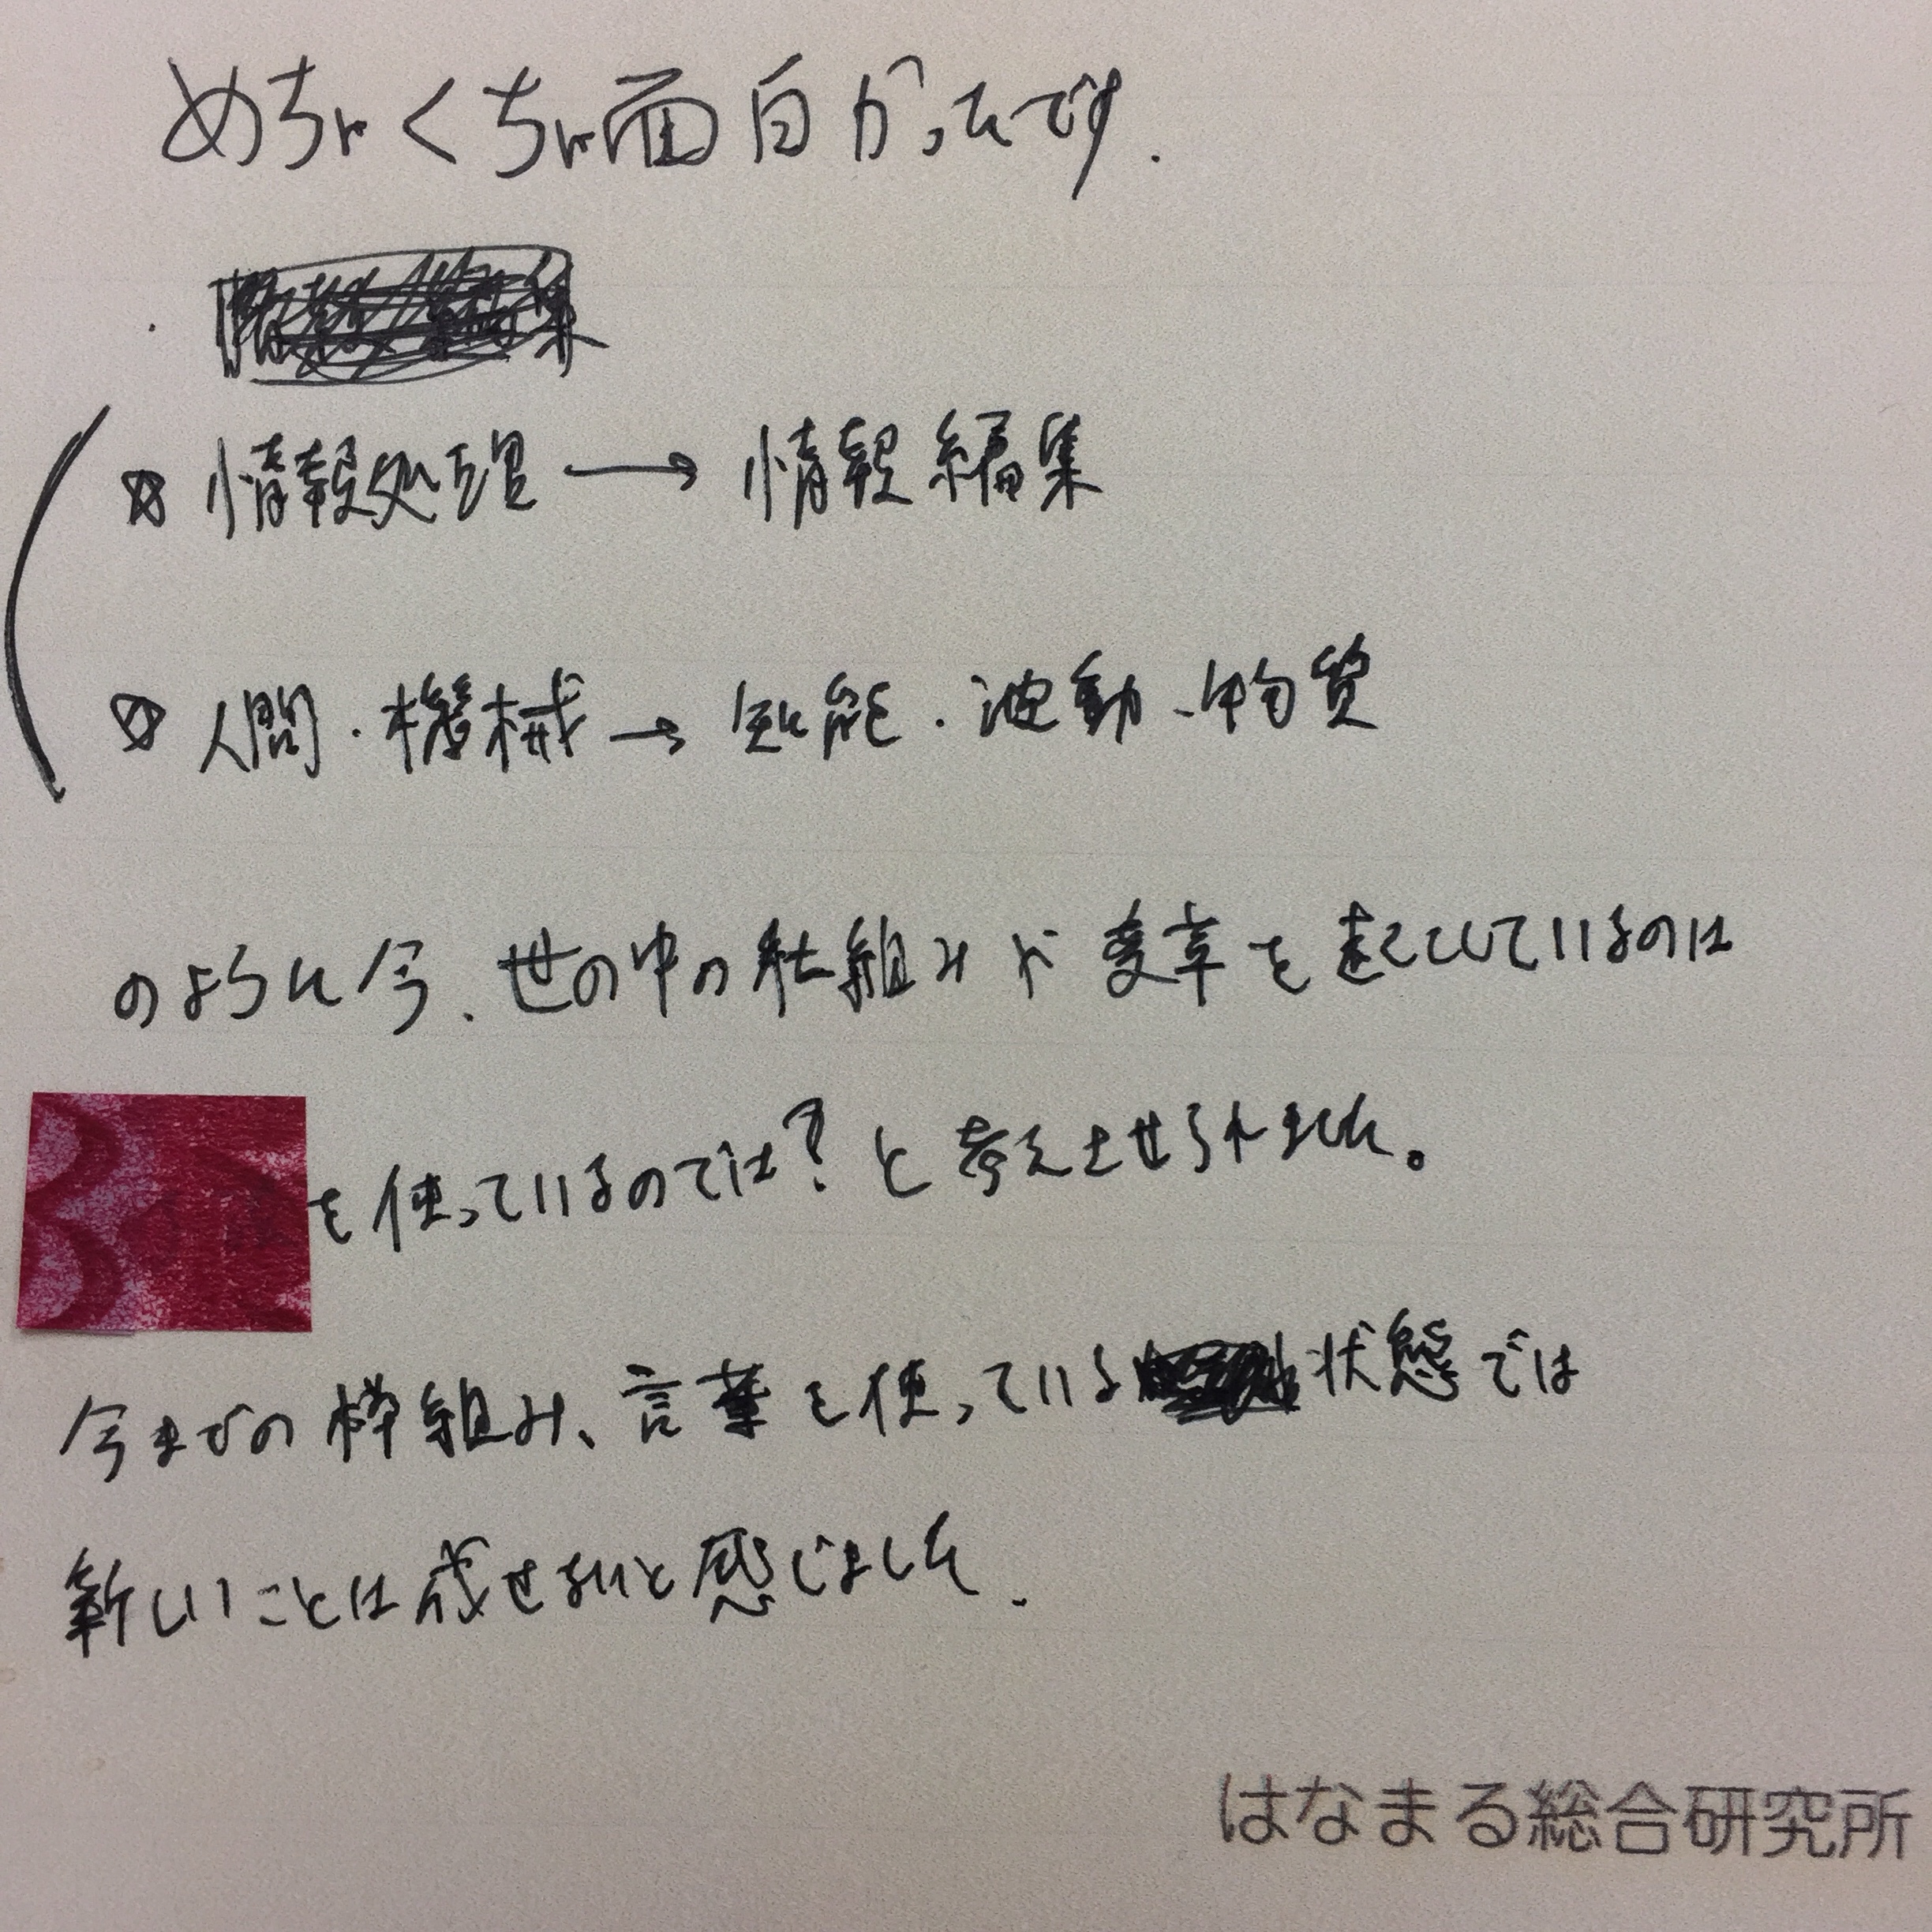 めちゃくちゃ面白かったです.
☆ 情報処理 → 情報編集
☆ 人間・機械 → 知能・波動・物質
のように今、世の中の仕組みや変革を起こしているのは
を使っているのでは?と考えさせられました。
今までの枠組み、言葉を使っている状態では
新しいことは成せないと感じました.
はなまる総合研究所